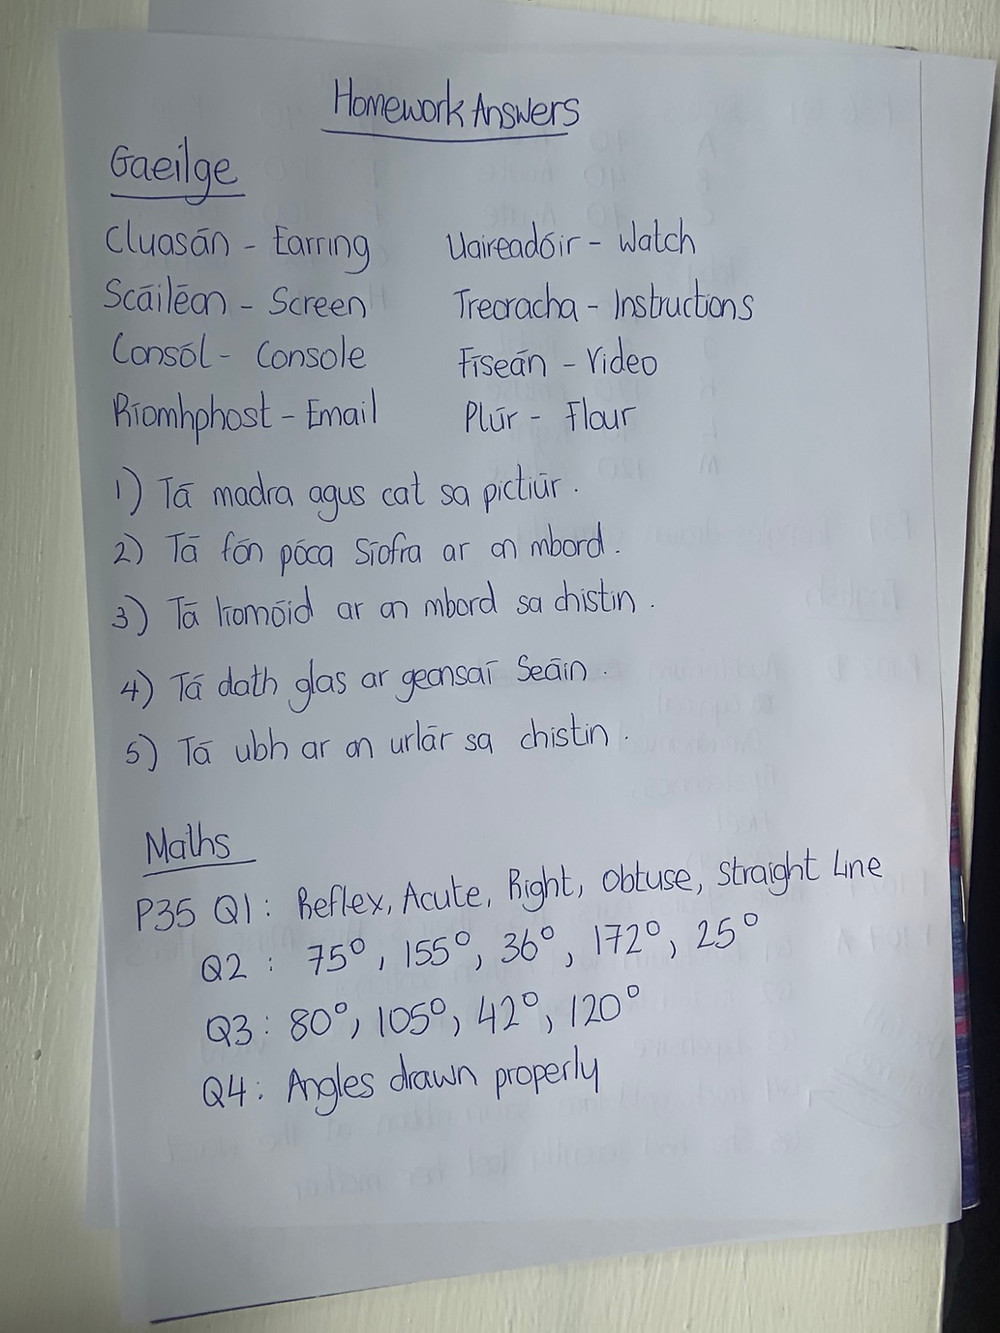 Homework Answers
Gaeilge
Cluasán - Earring Uaireadóir - Watch
Scáileán - Screen Treoracha - Instructions
Consól - Console Físeán - Video
Ríomhphost - Email Plúr - Flour
1) Tá madra agus cat sa pictiúr.
2) Tá fón póca Síofra ar an mbord.
3) Tá líomóid ar an mbord sa chistin.
4) Tá dath glas ar geansaí Seáin.
5) Tá ubh ar an urlár sa chistin.
Maths
P35 Q1: Reflex, Acute, Right, Obtuse, Straight Line
Q2: 75°, 155°, 36°, 172°, 25°
Q3: 80°, 105°, 42°, 120°
Q4: Angles drawn properly